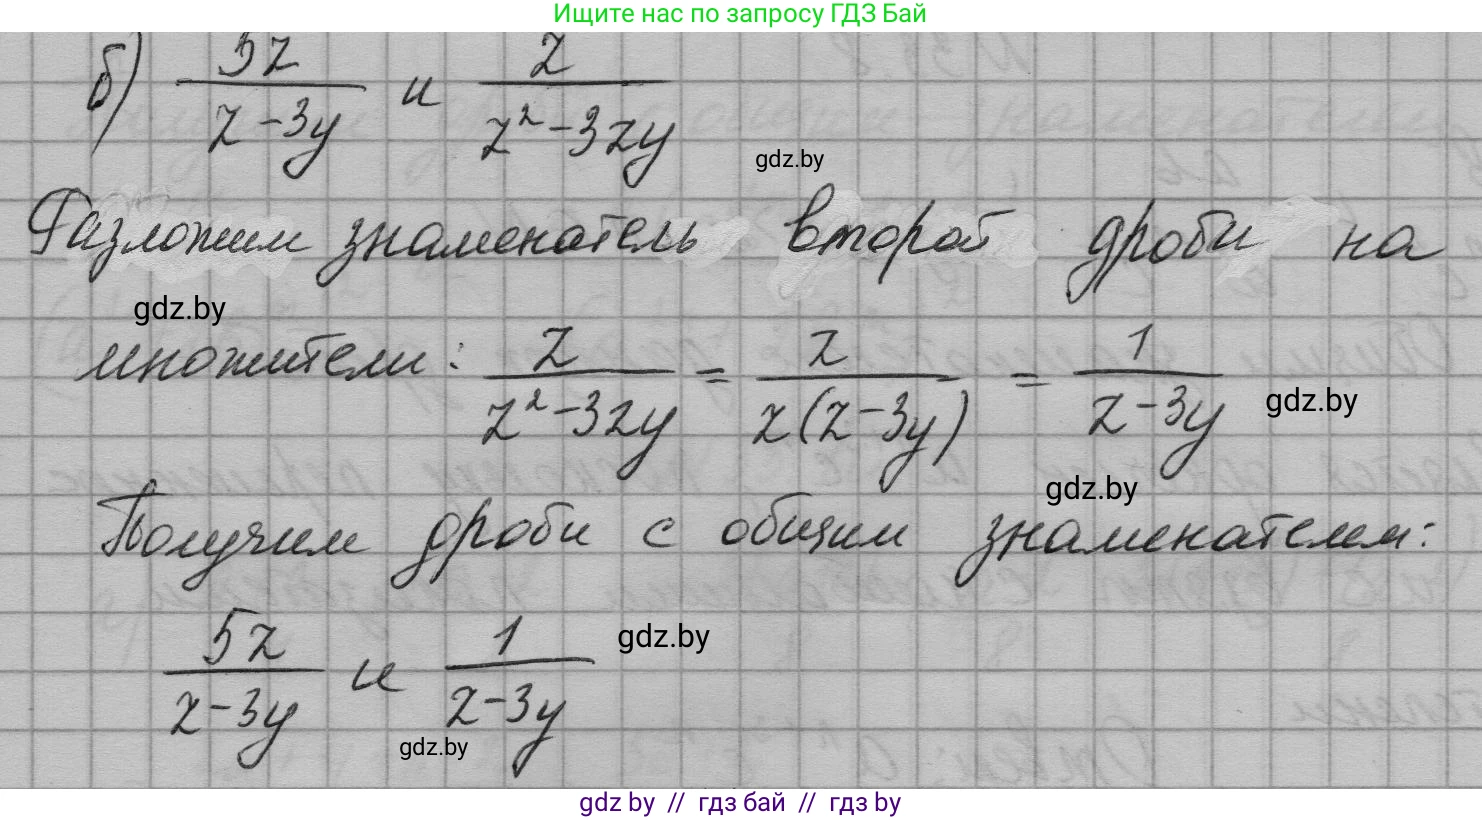 Ищите нас по запросу ГДЗ Бай
б) 5z/(z-3y) и z/(z²-3zy)
gdz.by
Разложим знаменатель второй дроби на
gdz.by
множители: z/(z²-3zy) = z/(z(z-3y)) = 1/(z-3y)
gdz.by
gdz.by
Получим дроби с общим знаменателем:
5z/(z-3y) и 1/(z-3y)
gdz.by
gdz.by
gdz by // гдз бай // гдз by